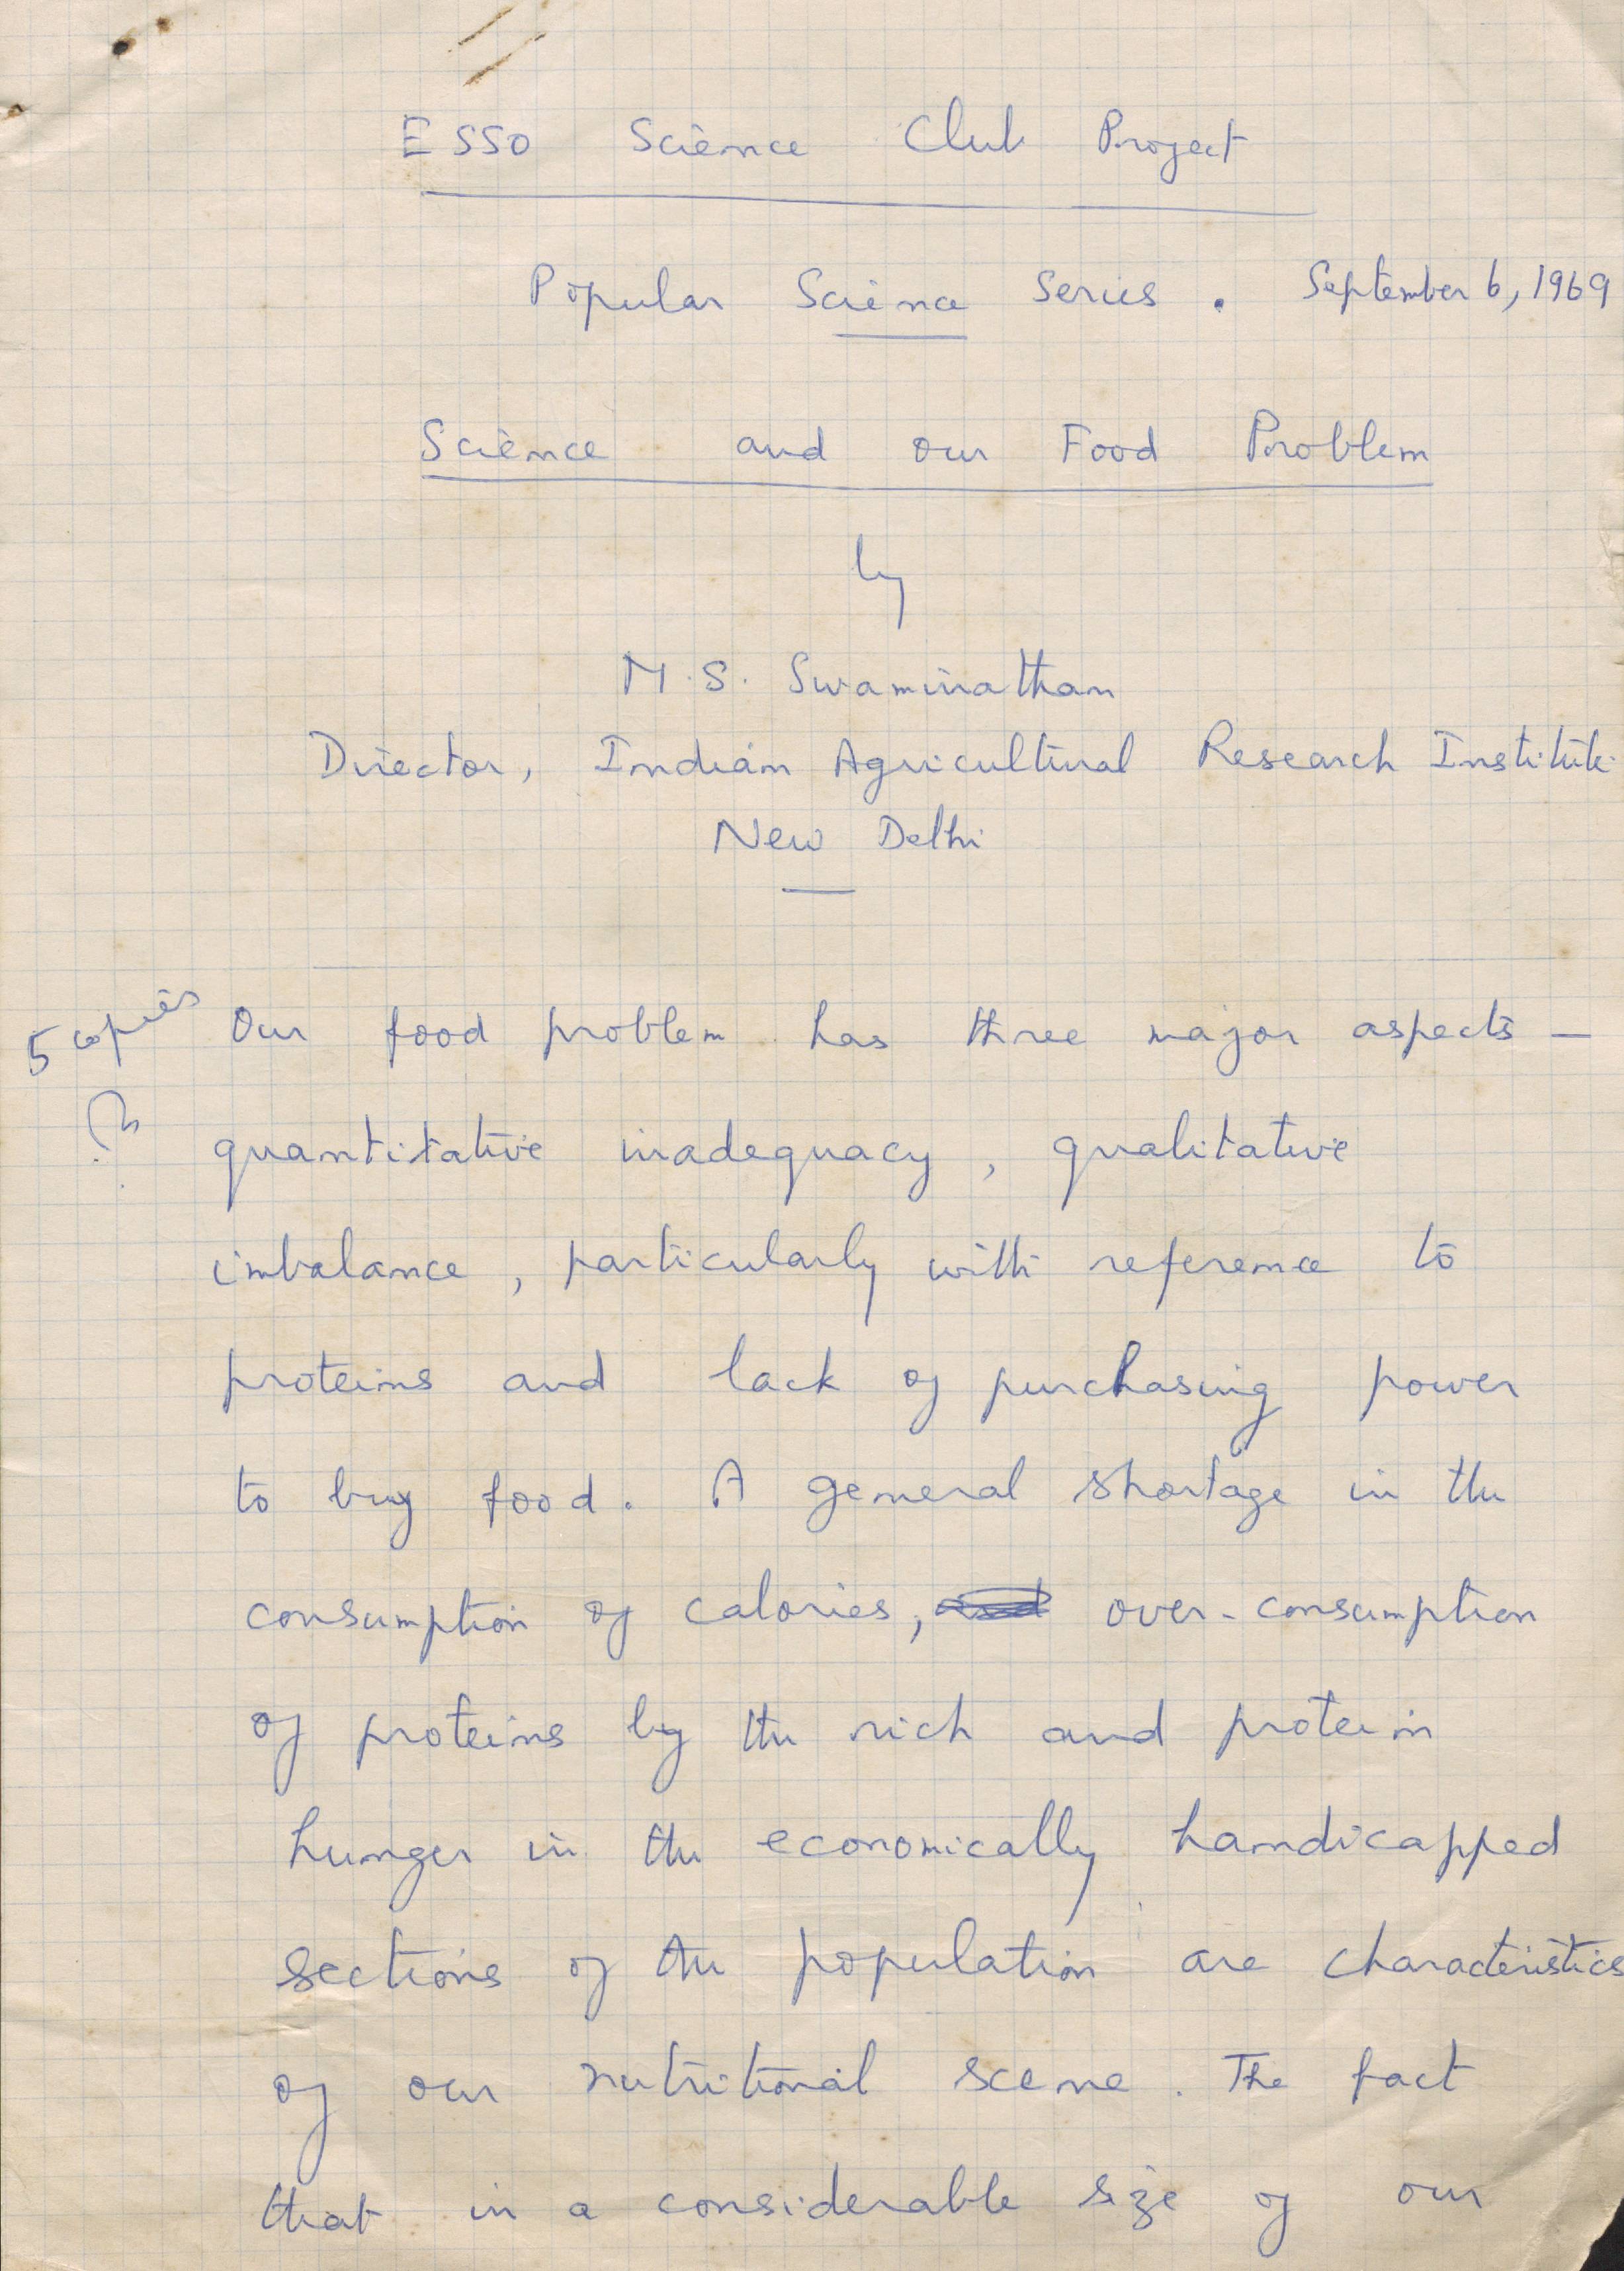 ESSO Science Club Project
Popular Science Series . September 6, 1969
Science and our Food Problem
by
M.S. Swaminathan
Director, Indian Agricultural Research Institute
New Delhi
5 copies
Our food problem has three major aspects —
quantitative inadequacy, qualitative
imbalance, particularly with reference to
proteins and lack of purchasing power
to buy food. A general shortage in the
consumption of calories, over-consumption
of proteins by the rich and protein
hunger in the economically handicapped
sections of the population are characteristics
of our nutritional scene. The fact
that in a considerable size of our